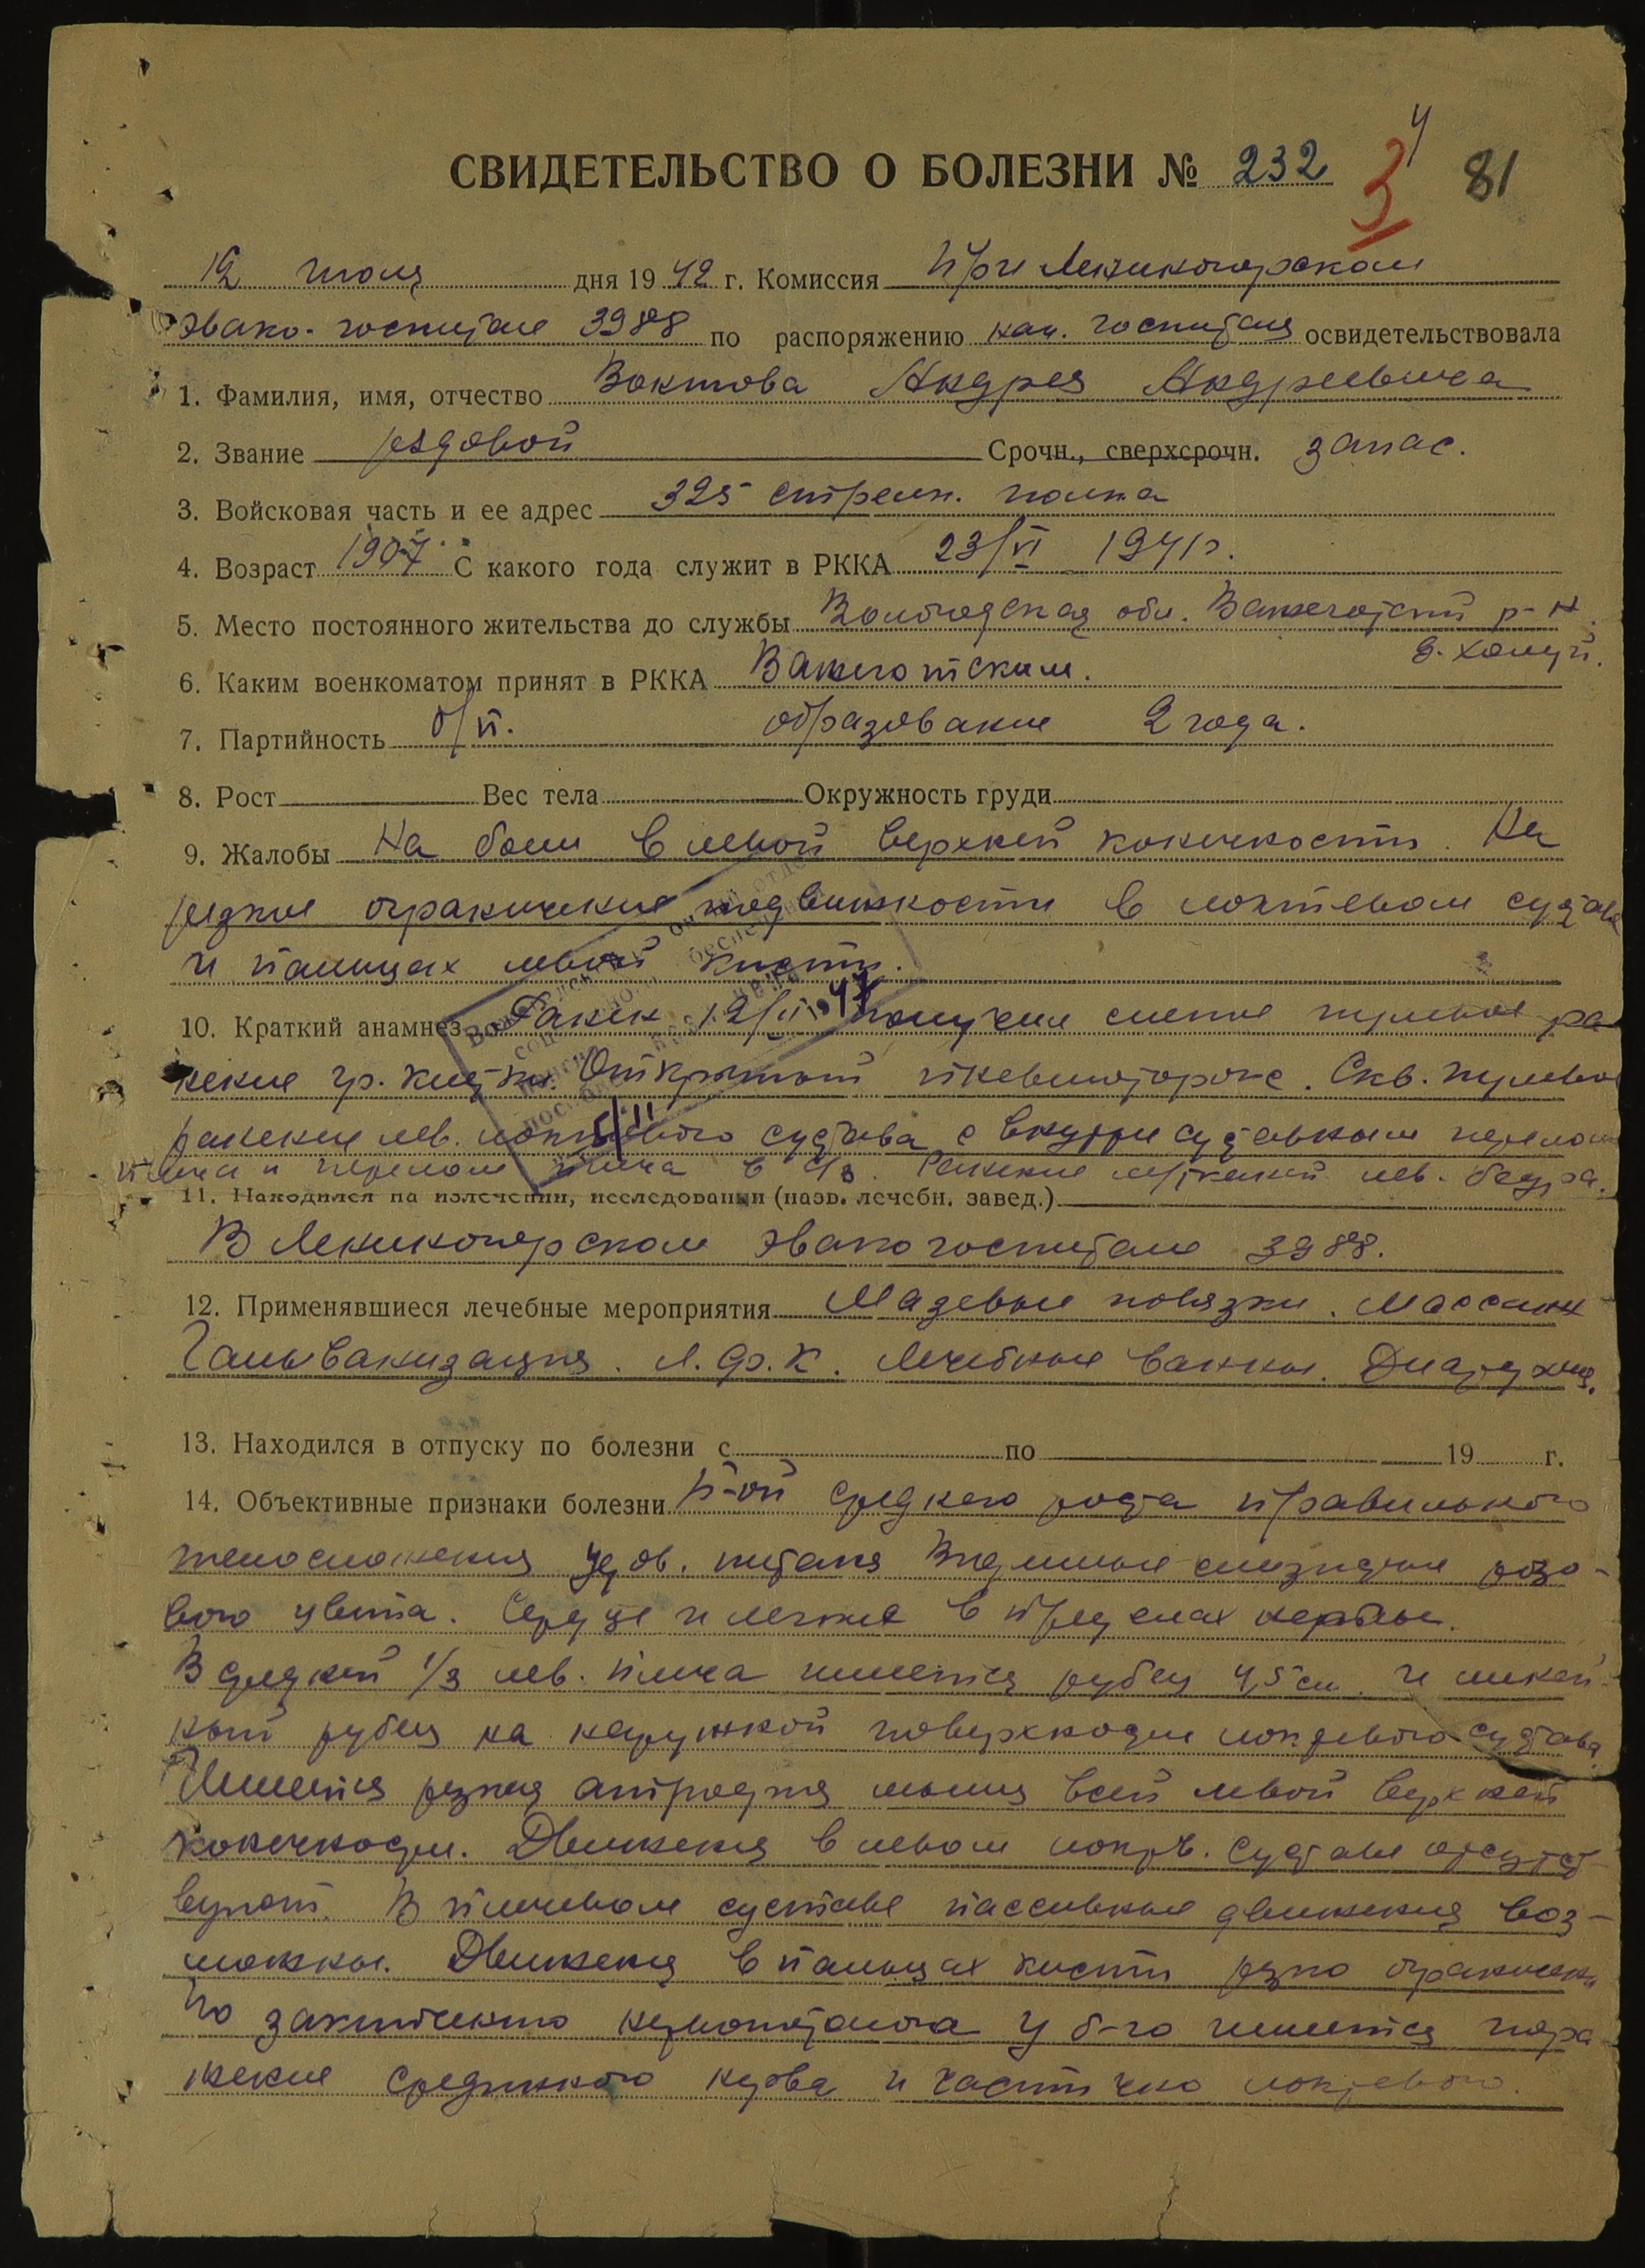 СВИДЕТЕЛЬСТВО О БОЛЕЗНИ № 232 81
12 июля дня 19 42 г. Комиссия при Лениногорском
эвако-госпитале 3988 по распоряжению нач. госпиталя освидетельствовала
1. Фамилия, имя, отчество Вактова Андрея Андреевича
2. Звание ездовой Срочн., сверхсрочн. запас.
3. Войсковая часть и ее адрес 325 стрелк. полка
4. Возраст 1907 С какого года служит в РККА 23/VI 1941г.
5. Место постоянного жительства до службы Вологодская обл. Вожегодский р-н.
д. Холуй.
6. Каким военкоматом принят в РККА Вожегодским.
7. Партийность б/п. образование 2 года.
8. Рост Вес тела Окружность груди
9. Жалобы На боли в левой верхней конечности. На
резкое ограничение подвижности в локтевом суставе
и пальцах левой кисти.
10. Краткий анамнез Ранен 12/ получил слепое пулевое ра
нение гр. клетки. Открытый пневмоторакс. Скв. пулевое
ранение лев. локтевого сустава с внутрисуставным перелом
плеча и перелом плеча в с/з. Ранение мягких лев. бедра.
11. Находился на излечении, исследовании (назв. лечебн. завед.)
В Лениногорском эвакогоспитале 3988.
12. Применявшиеся лечебные мероприятия Мазевые повязки. Массаж
Гальванизация. Л.ф.к. Лечебные ванны. Диатермия.
13. Находился в отпуску по болезни с по 19 г.
14. Объективные признаки болезни Б-ой среднего роста правильного
телосложения удов. питания Видимые слизистые розо-
вого цвета. Сердце и легкие в пределах нормы.
В средней 1/3 лев. плеча имеется рубец 4,5 см. и
рубец на наружной поверхности локтевого сустава
Имеется резкая атрофия мышц всей левой верхней
конечности. Движения в левом локтев. суставе отсутст
вуют. В плечевом суставе пассивные движения воз-
можны. Движения в пальцах кисти резко ограничены
По заключению невропатолога у б-го имеется пора
жение срединного нерва и частично локтевого.